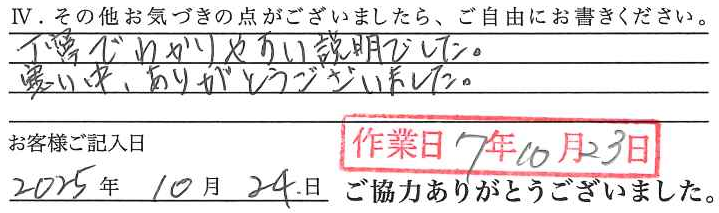 Ⅳ．その他お気づきの点がございましたら、ご自由にお書きください。
丁寧でわかりやすい説明でした。
寒い中、ありがとうございました。
お客様ご記入日
作業日 7年10月23日
2025年 10月 24日 ご協力ありがとうございました。